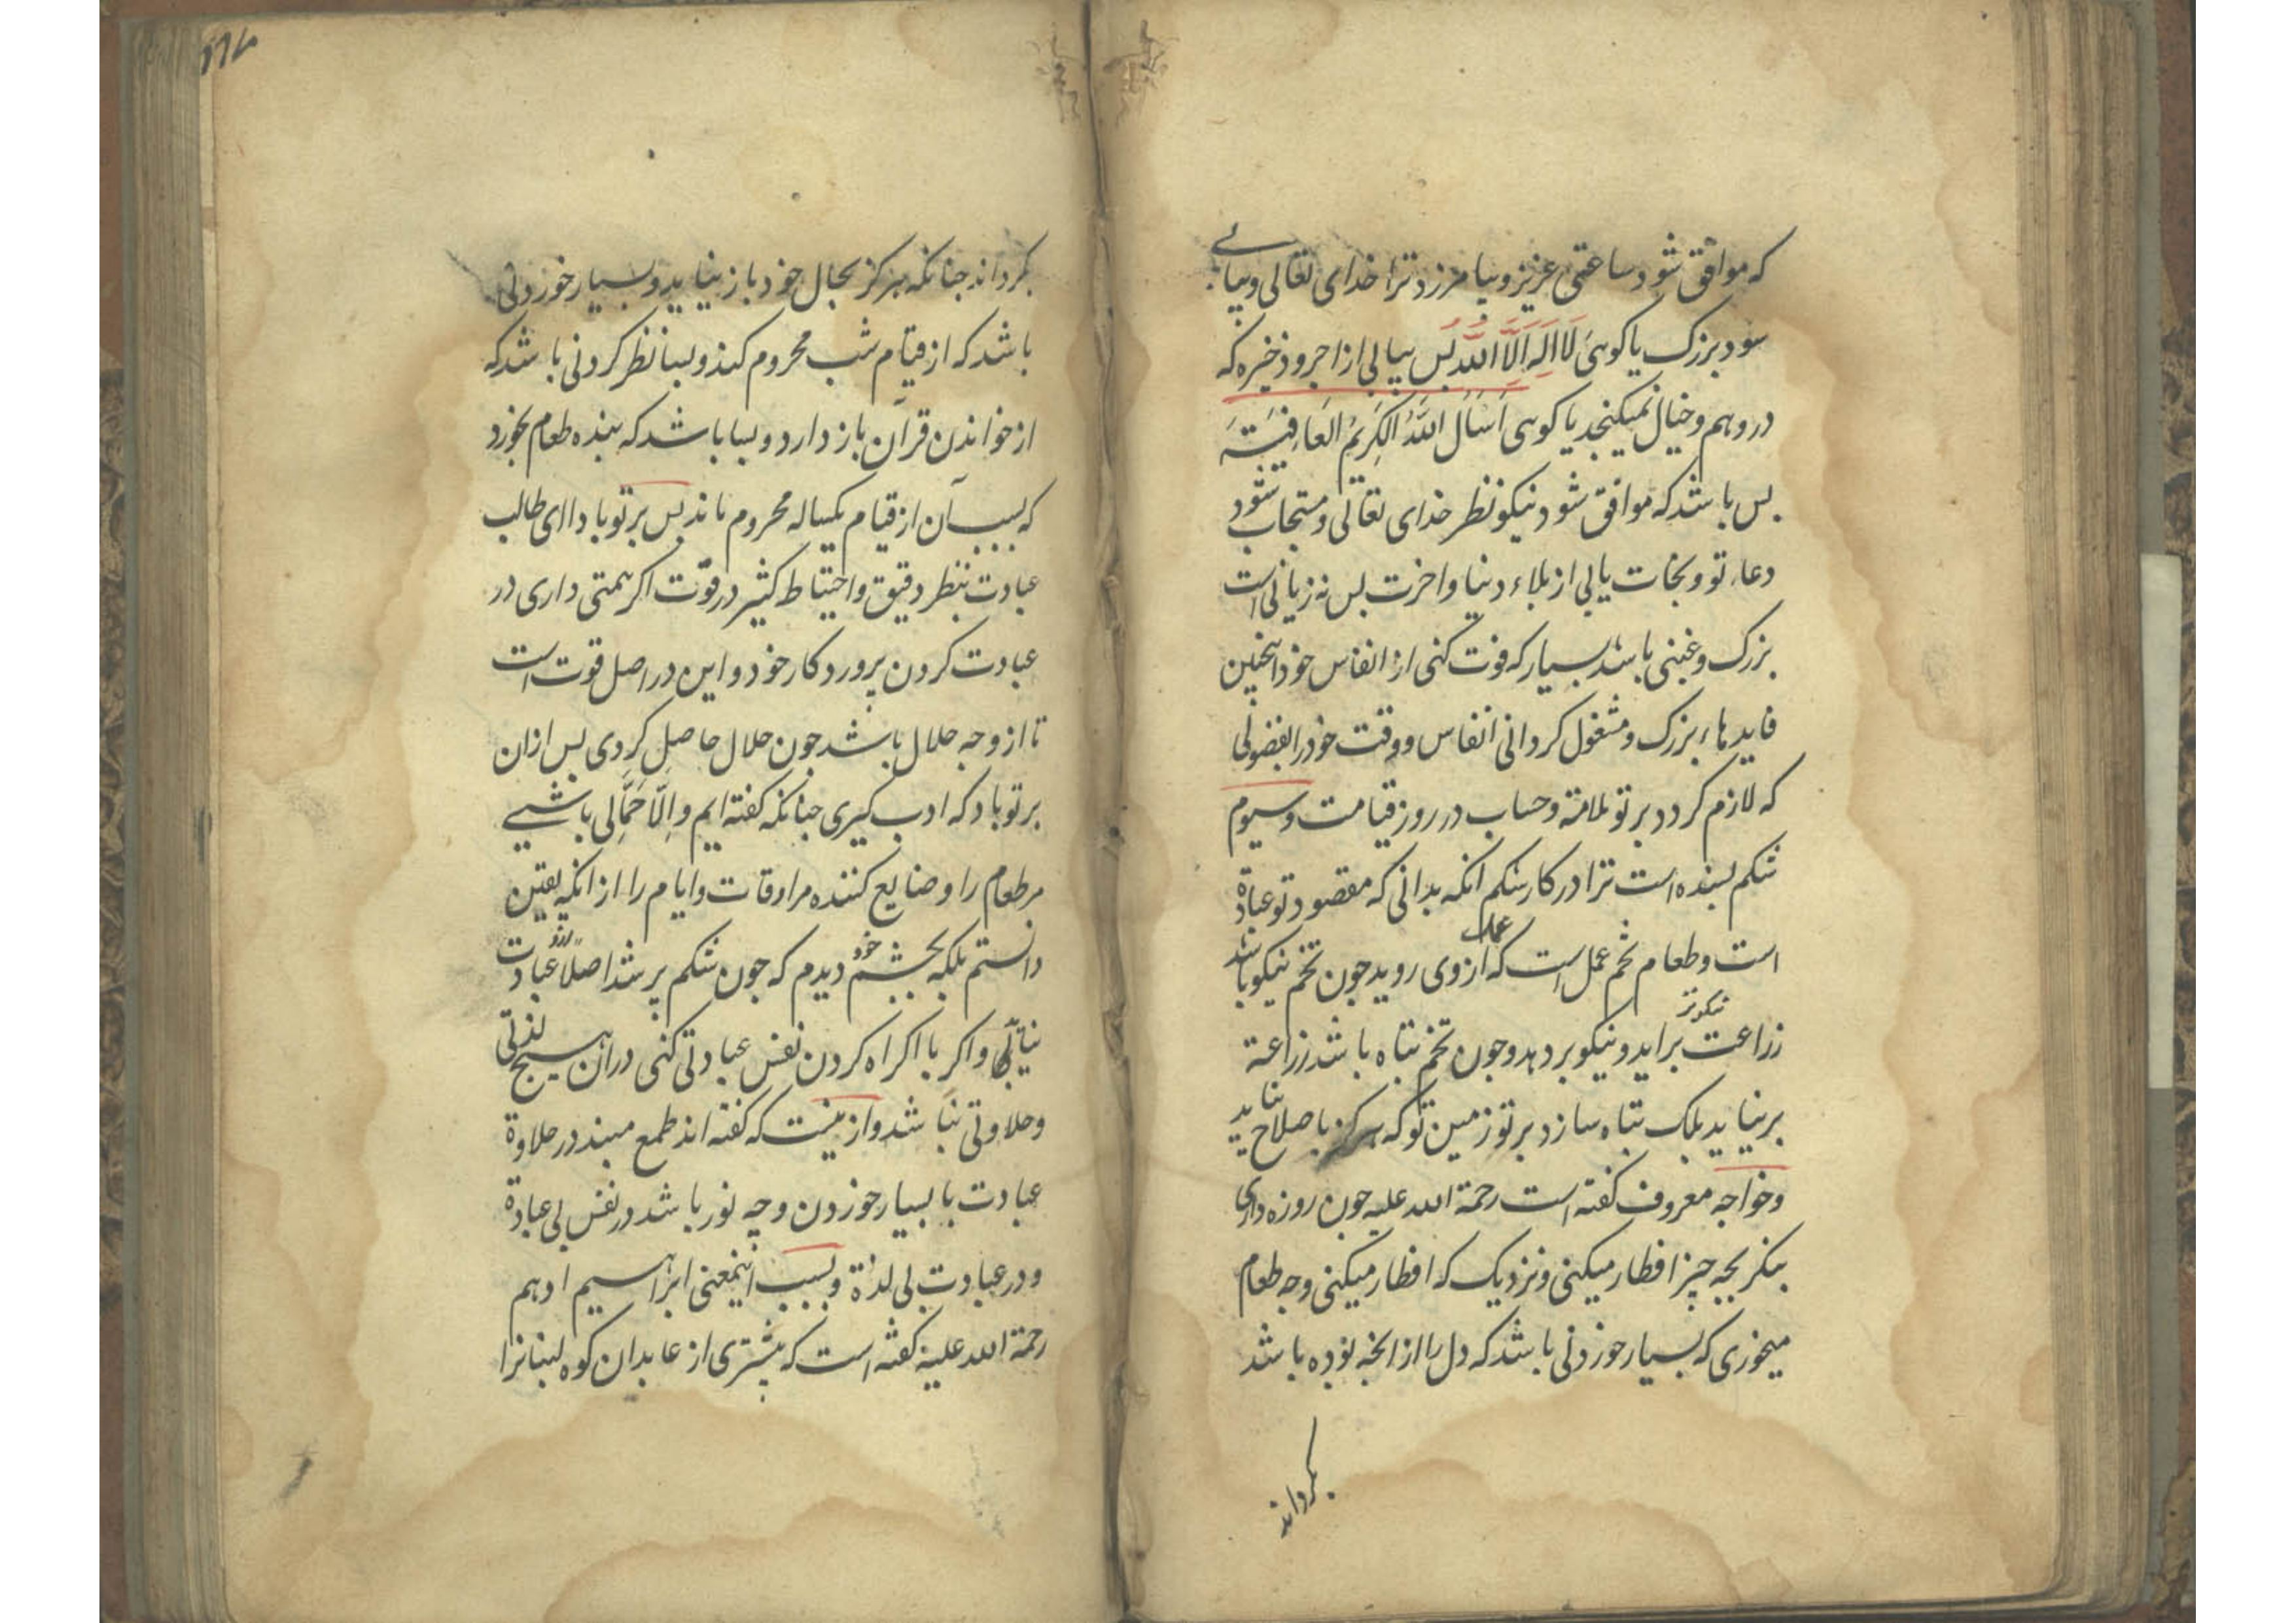 که موافق شود ساعتی عزیز و بیامرزد ترا خدای تعالی و بیابی
سود بزرک یا کوئی لَا اِلٰهَ اِلَّا اللّٰهُ بس بیابی از اجر و ذخیره که
در وهم و خیال نمیکنجد یا کوئی اَسْاَلُ اللّٰهَ الکَرِیمُ العَافِیَتَه
بس باشد که موافق شود نیکو نظر خدای تعالی و مستجاب شود
دعاء تو و نجات یابی از بلاء دنیا و اخرت بس نه زیانی است
بزرک و غبنی باشد بسیار که فوت کنی از انفاس خود اینچنین
فایدهاء بزرک و مشغول کردانی انفاس و وقت خود را بفضولی
که لازم کردد بر تو ملامة و حساب در روز قیامت و سیوم
شکم بسنده است ترا در کار شکم انکه بدانی که مقصود تو عبادة
است و طعام تخم عمل است که عمل از وی روید جون تخم نیکو باشد
زراعت نیکوتر براید و نیکو بر دهد و جون تخم تباه باشد زراعة
بر نیاید بلک تباه سازد بر تو زمین تو که هرکز باصلاح نیاید
و خواجه معروف کفته است رحمة الله علیه جون روزه داری
بنکر بجه چیز افطار میکنی و نزدیک که افطار میکنی و جه طعام
میخوری که بسیار خوردنی باشد که دل را از انجه بوده باشد
بکرداند
۱۱۴
بکرداند جنانکه هرکز بحال خود باز نیاید و بسیار خوردنی
باشد که از قیام شب محروم کند و بسا نظر کردنی باشد که
از خواندن قرآن باز دارد و بسا باشد که بنده طعام بخورد
که بسبب آن از قیام یکساله محروم ماند بس بر تو بادا ای طالب
عبادت بنظر دقیق و احتیاط کثیر در قوّت اکر همتی داری در
عبادت کردن پروردکار خود و این در اصل قوت است
تا از وجه حلال باشد جون حلال حاصل کردی بس ازان
بر تو باد که ادب کیری جنانکه کفته ایم و اِلّا حَمَّالی باشی
مر طعام را و ضایع کننده مر اوقات و ایام را از انکه یقین
دانستم بلکه بچشم خود دیدم که جون شکم پر شد اصلًا ازو عبادت
نیاید و اکر با اکراه کردن نفس عبادتی کنی دران هیچ لذتی
و حلاوتی نباشد و ازینست که کفته اند طمع مبند در حلاوة
عبادت با بسیار خوردن و چه نور باشد در نفس بی عبادة
و در عبادت بی لذة و بسبب اینمعنی ابراهیم ادهم
رحمة الله علیه کفته است که بیشتری از عابدان کوه لبنانرا